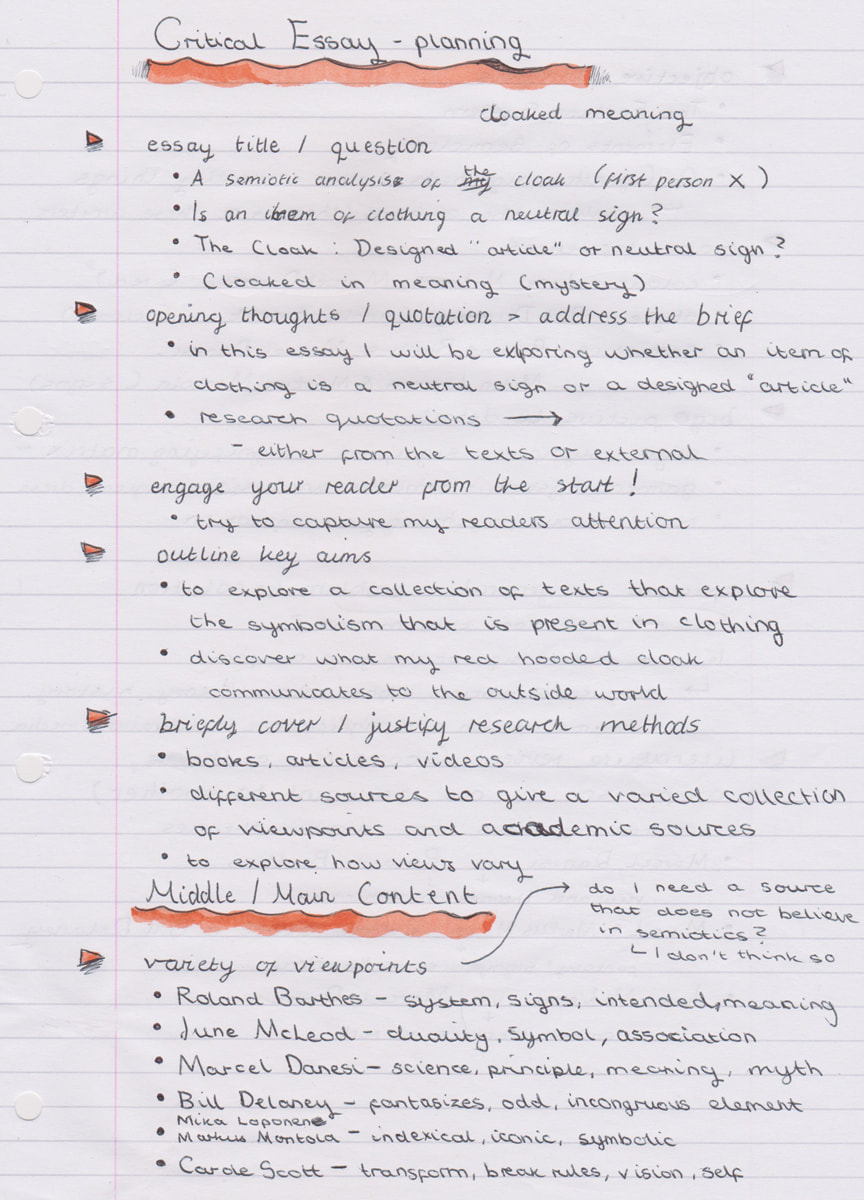 Critical Essay - planning
cloaked meaning
essay title / question
• A semiotic analysis of the cloak (first person X)
• Is an item of clothing a neutral sign?
• The Cloak : Designed "article" or neutral sign?
• Cloaked in meaning (mystery)
opening thoughts / quotation > address the brief
• in this essay I will be exploring whether an item of
clothing is a neutral sign or a designed "article"
• research quotations →
- either from the texts or external
engage your reader from the start!
• try to capture my readers attention
outline key aims
• to explore a collection of texts that explore
the symbolism that is present in clothing
• discover what my red hooded cloak
communicates to the outside world
briefly cover / justify research methods
• books, articles, videos
• different sources to give a varied collection
of viewpoints and academic sources
• to explore how views vary
Middle / Main Content
do I need a source
that does not believe
in semiotics?
└ I don't think so
variety of viewpoints
• Roland Barthes - system, signs, intended, meaning
• June McLeod - duality, symbol, association
• Marcel Danesi - science, principle, meaning, myth
• Bill Delaney - fantasizes, odd, incongruous element
Mika Loponen
• Markus Montola - indexical, iconic, symbolic
• Carole Scott - transform, break rules, vision, self